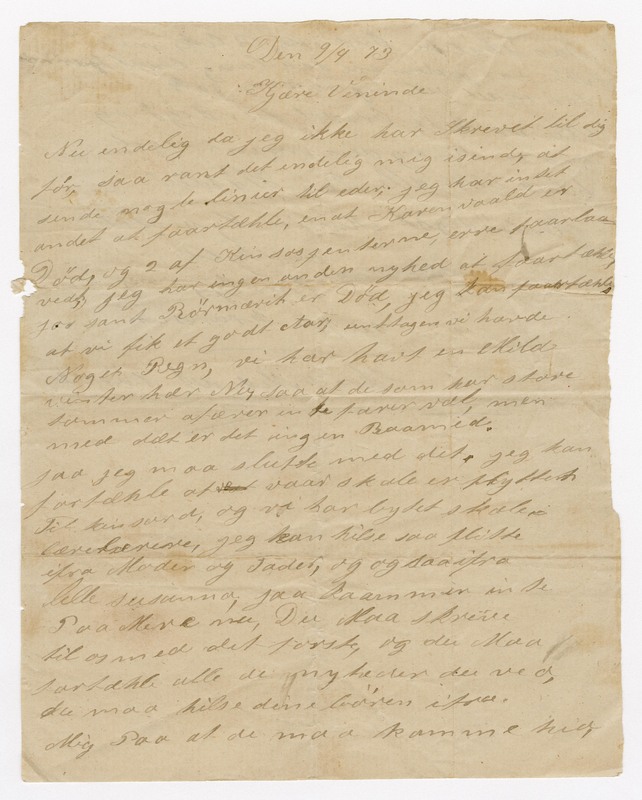 Den 9/4 73
Kjære Veninde
Nu endelig da jeg ikke har Skrevet til dig
før, saa rant det endelig mig isind, at
sende nogle linier til eder, jeg har intet
andet at faartæhle, end at Karen vaald er
Død, og 2 af Kinsosjenterne, erre faarlaa
ved, jeg har ingen anden nyhed at faartæhle,
jor sant Rörmarit er Død, jeg kan faartæhle,
at vi fik et godt Aar, unttagen vi havde
Noget Regn, vi har havt en Mild
vinter hær Nu, saa at de som har store
tommer afærer inte farer væl, men
med dæt er det ingen Raamed.
saa jeg maa slutte med det, jeg kan
fortæhle at vaar skole er flyttet
Til kinsard, og vi har bytet skole
lærere, jeg kan hilse saa flitte
ifra Moder og Fader, og ogsaa ifra
lille susanna, jaa kaammer inte
Paa Mere nu, Du Maa skrive
til os med det første, og du Maa
fortæhle alle de nyheder du ved,
du maa hilse dine bören ifra
Mig, Paa at de maa komme hid